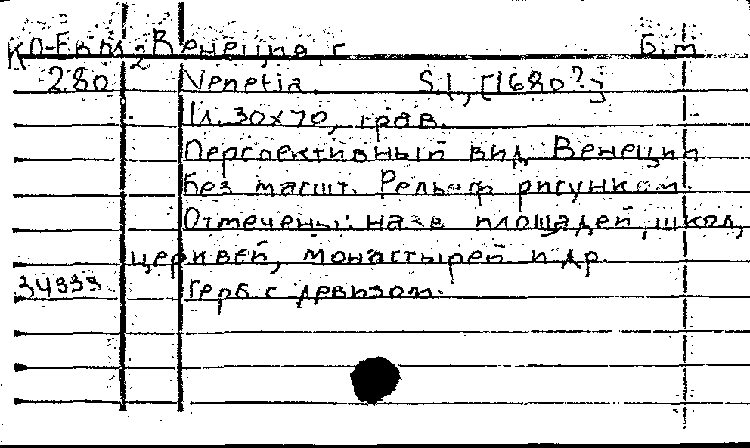 КО-Евм 2 Венеция г. Б.м
280 Venetia. S.l, [1680?]
1л. 30х70, грав.
Перспективный вид Венеции
Без масшт. Рельеф рисунком.
Отмечены: назв площадей, школ,
церквей, монастырей и др.
34933 Герб с девизом.